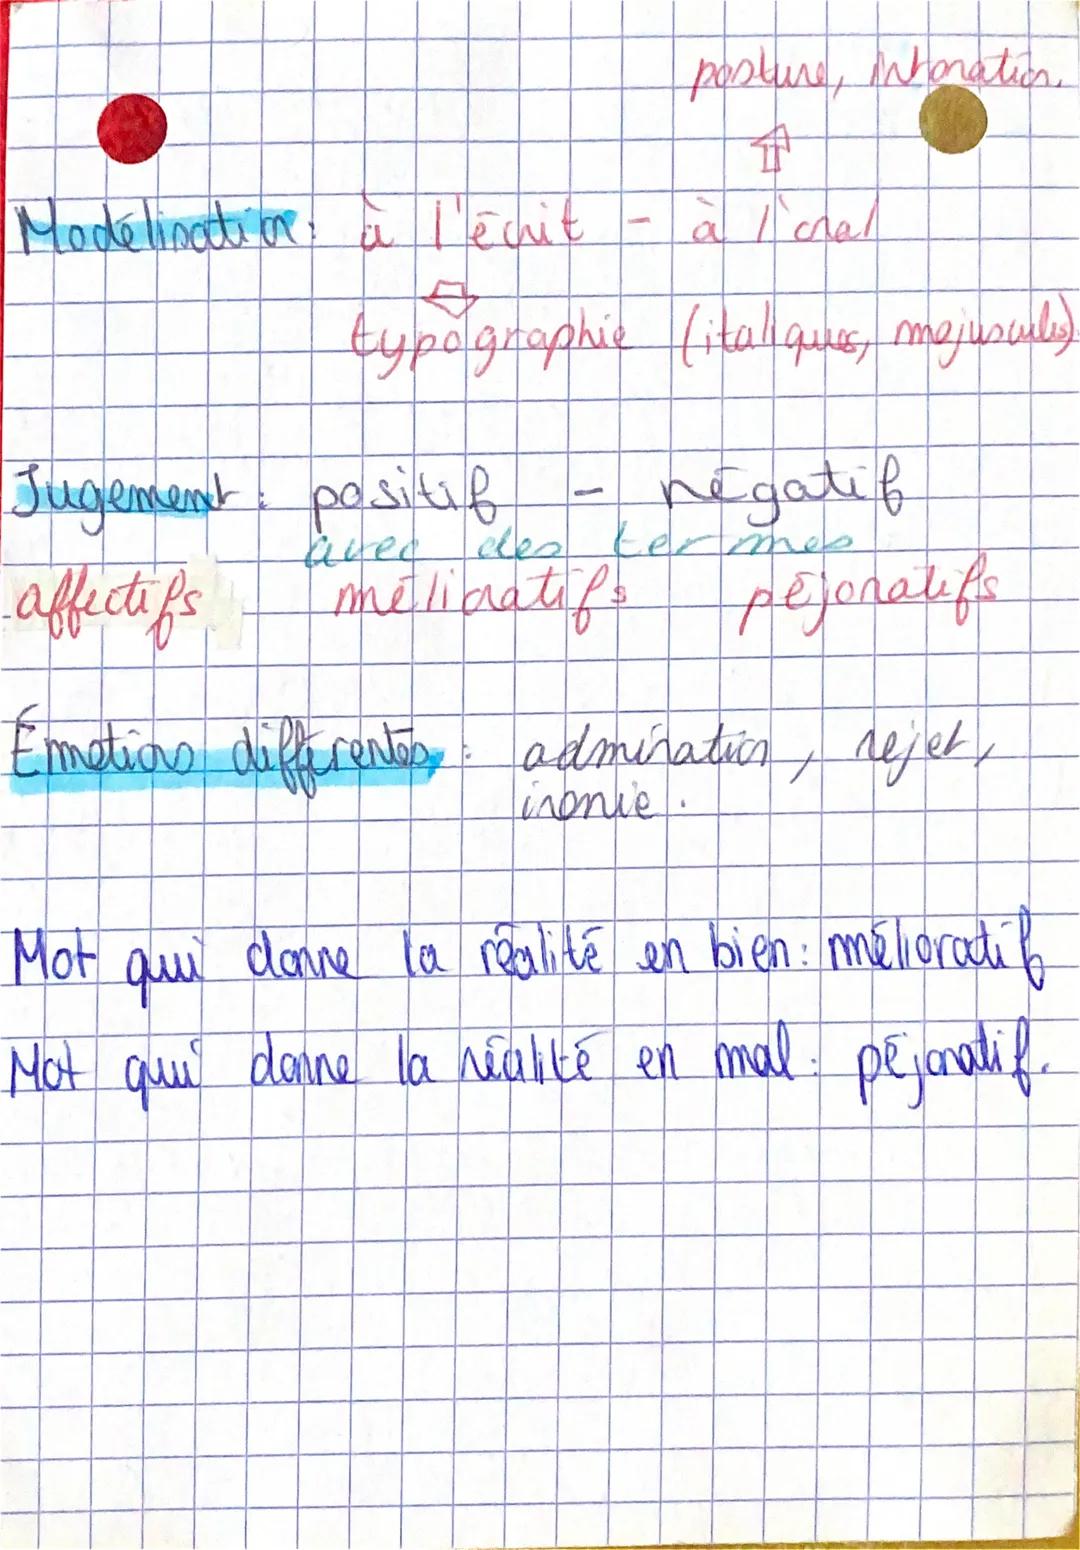 posture, intonation.
Modélisation : à l'écrit - à l'oral
typographie (italiques, majuscules)
Jugement : positif - négatif
avec des termes
affectifs mélioratifs péjoratifs
Émotions différentes : admiration, rejet,
ironie.
Mot qui donne la réalité en bien : mélioratif
Mot qui donne la réalité en mal : péjoratif.